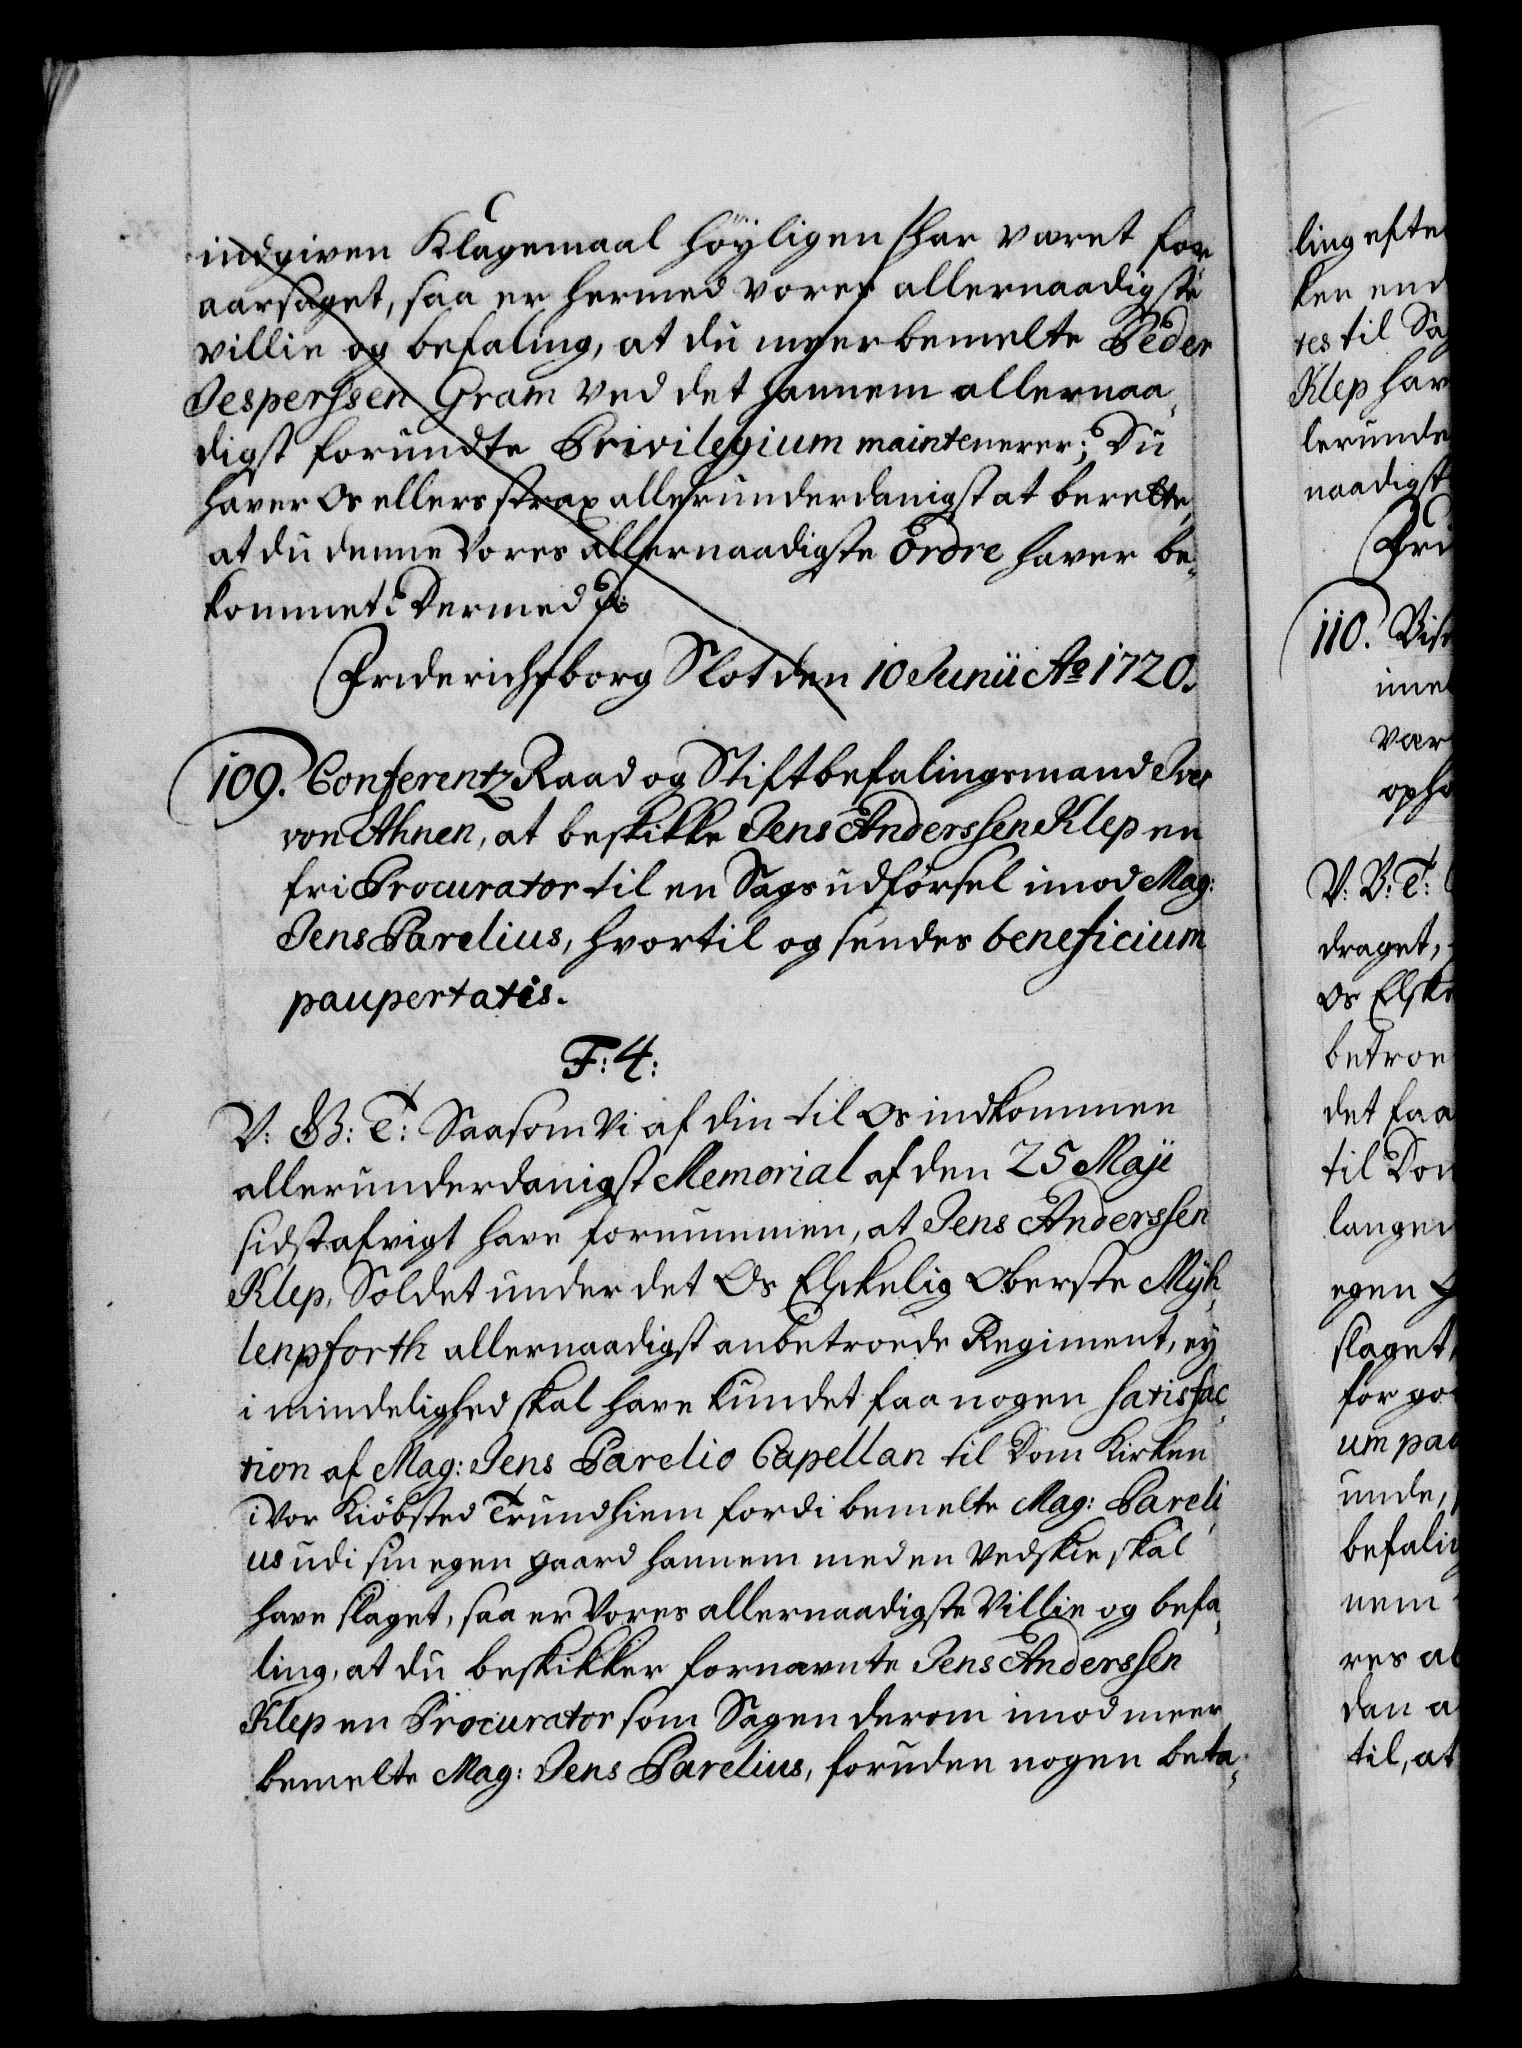 indgiven Klagemaal höyligen har været for
aarsaget, saa er hermed vores allernaadigste
villie og befaling, at du meerbemelte Peder
Jesperssen Gram ved det hannem allernaa,
digst forundte Privilegium maintenerer; Du
haver Os ellers strax allerunderdanigst at berette,
at du denne Vores allernaadigste Ordre haver be,
kommet. Dermed p:
Friderichsborg Slot den 10 Junii Ao 1720.
109. Conferentz Raad og Stiftbefalingsmand Iver
von Ahnen, at beskikke Jens Anderssen Klep en
fri Procurator til en Sags udförsel imod Mag:
Jens Parelius, hvortil og sendes beneficium
paupertatis.
F: 4:
V: G: T: Saasom Vi af din til Os indkommen
allerunderdanigst Memorial af den 25 Maji
sidstafvigt have fornummen, at Jens Anderssen
Klep, Soldet under det Os Elskelig Oberste Myh,
lenpforth allernaadigst anbetroede Regiment, ey
i mindelighed skal have kundet faa nogen satisfac,
tion af Mag: Jens Parelio Capellan til Dom Kirken
i Vor Kiöbsted Trundhiem fordi bemelte Mag: Pareli,
us udi sin egen gaard hannem med en Vedskie skal
have slaget, saa er Vores allernaadigste Villie og befa,
ling, at du beskikker fornævnte Jens Anderssen
Klep en Procurator som Sagen derom imod meer,
bemelte Mag: Jens Parelius, foruden nogen beta,
ling efter
ken end
res til Sag
Klep har
lerunde
naadigst
Fri
110. Vise
ime
vær
opho
V: G: T:
draget,
Os Elske
betroe
det faa
til Dom
langen
egen
slaget,
for go
um pau
unde,
befalin
nem
res al
dan a
til, at